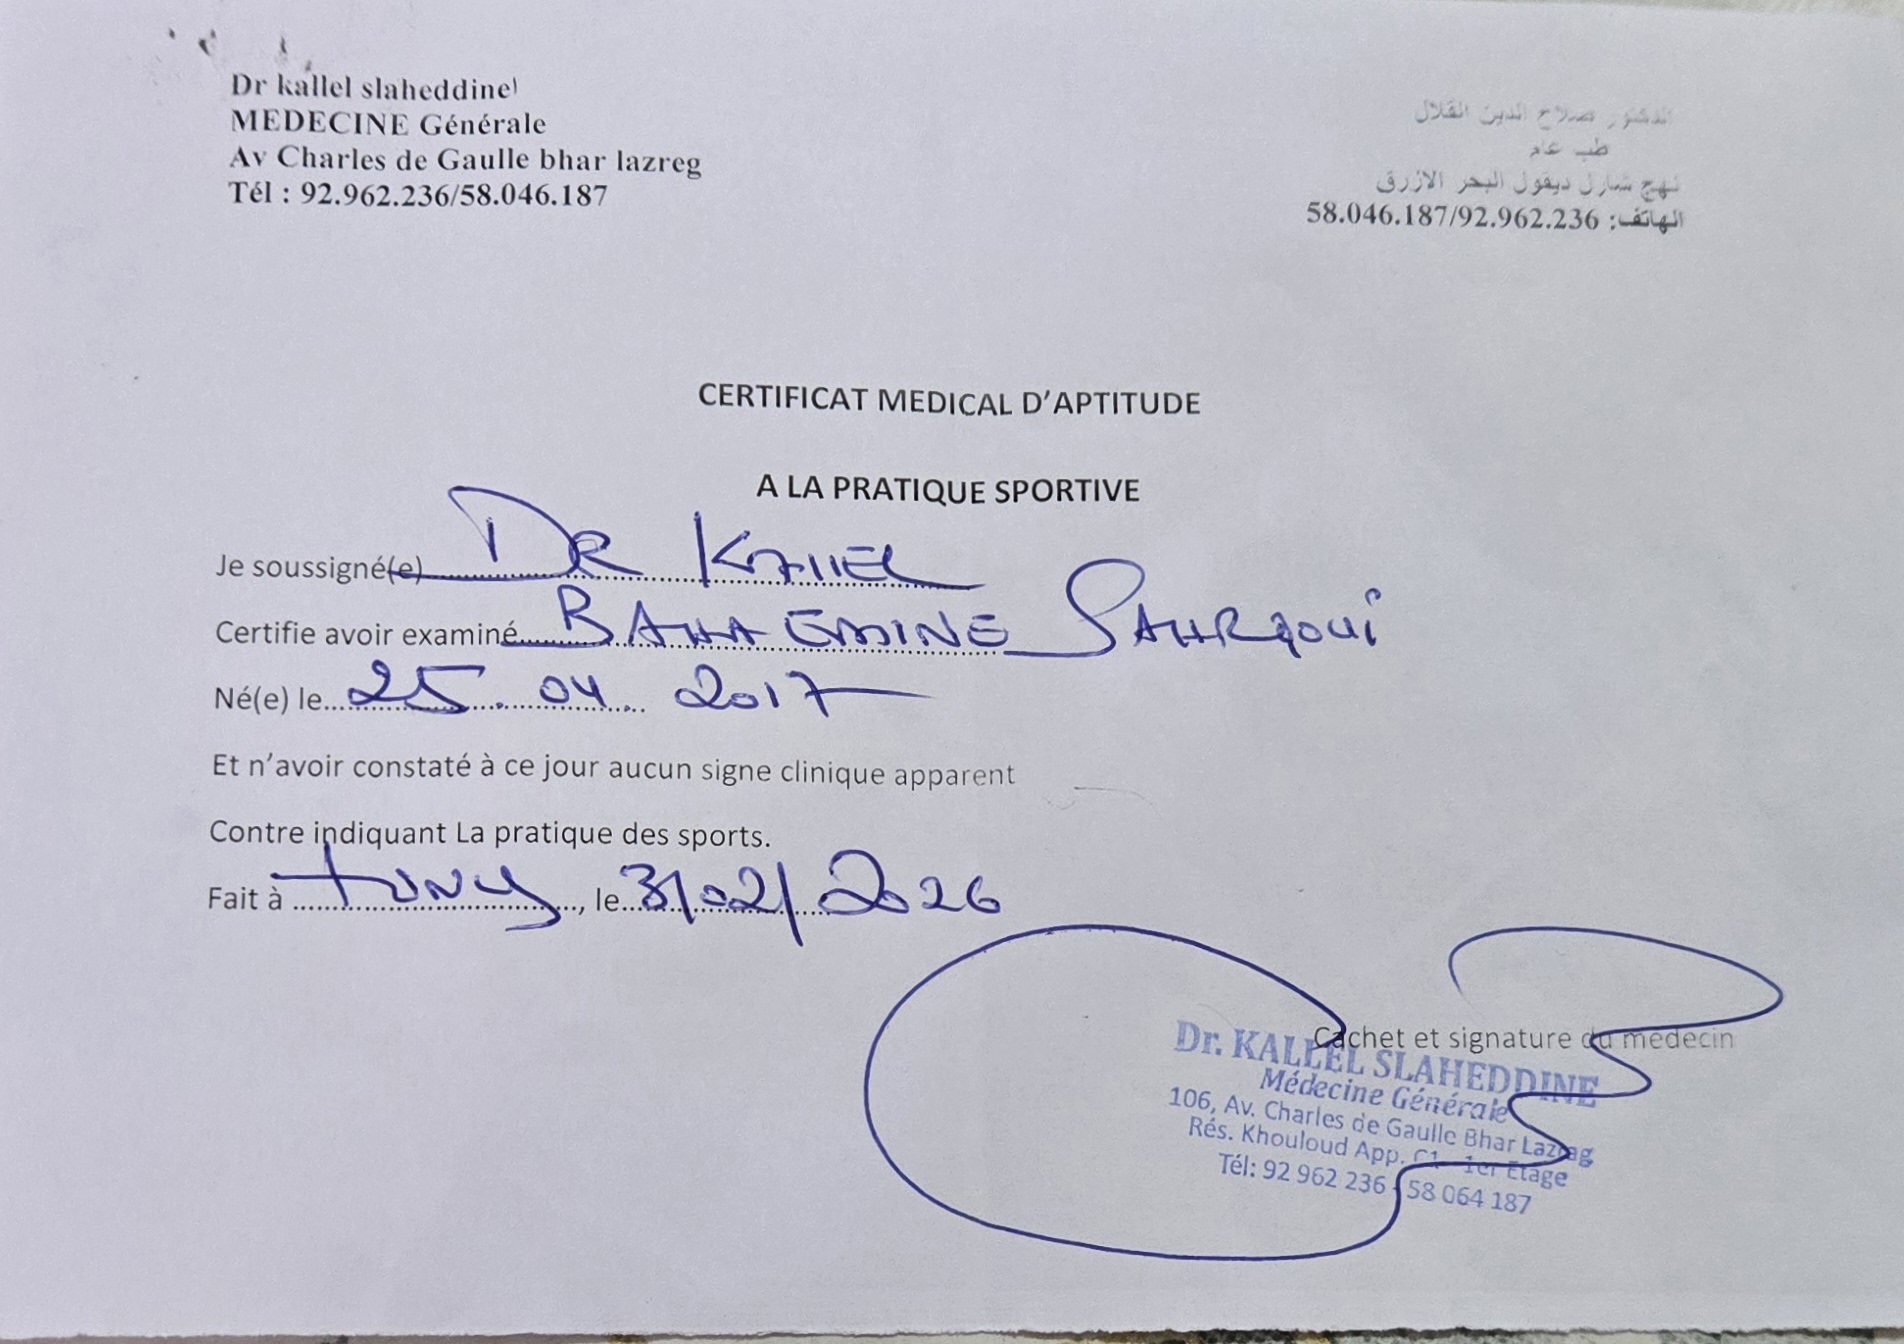 Dr kallel slaheddine
MEDECINE Générale
Av Charles de Gaulle bhar lazreg
Tél : 92.962.236/58.046.187
الدكتور صلاح الدين القلال
طب عام
نهج شارل ديغول البحر الازرق
الهاتف: 58.046.187/92.962.236
CERTIFICAT MEDICAL D'APTITUDE
A LA PRATIQUE SPORTIVE
Je soussigné(e) DR KALLEL
Certifie avoir examiné BAHA EMINE
Né(e) le 25.04.2017
Et n'avoir constaté à ce jour aucun signe clinique apparent
Contre indiquant La pratique des sports.
Fait à tunis, le 3/02/2026
Cachet et signature du médecin
Dr. KALLEL SLAHEDDINE
Médecine Générale
106, Av. Charles de Gaulle Bhar Lazrag
Rés. Khouloud App. C1 - 1er Etage
Tél: 92 962 236 - 58 064 187